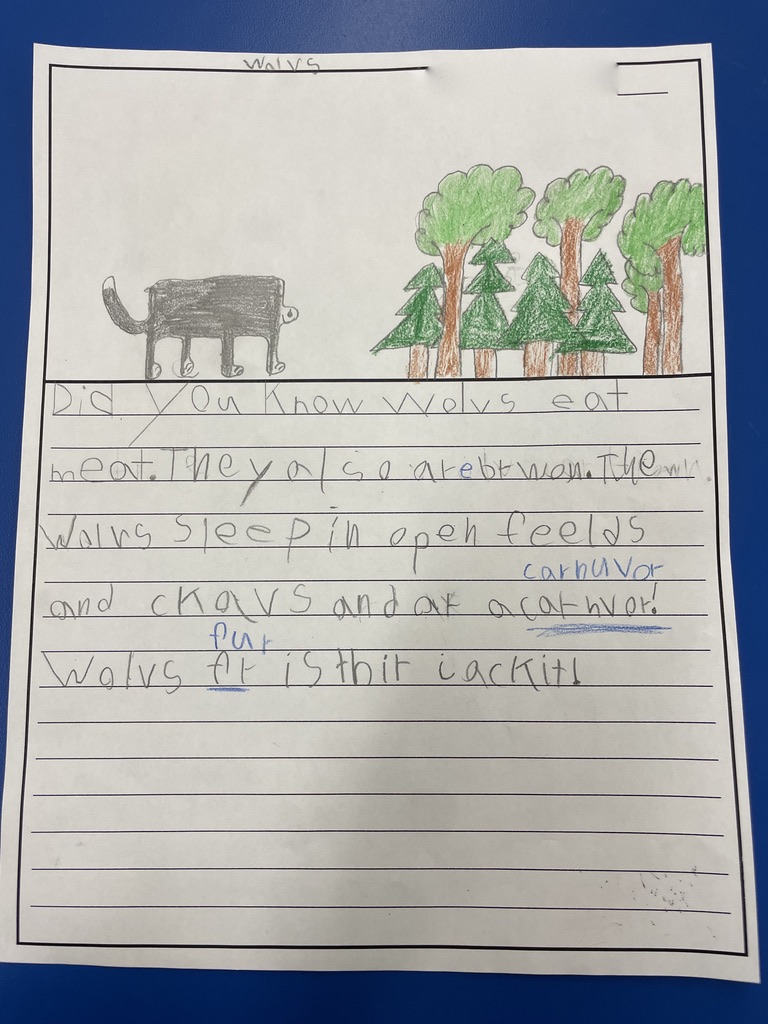 Wolvs
Did you know wolvs eat
meat. They also are brwon. The
Wolvs sleep in open feelds
carnuvor
and ckavs and ar a carnvor!
fur
Wolvs fr is thir jackit!